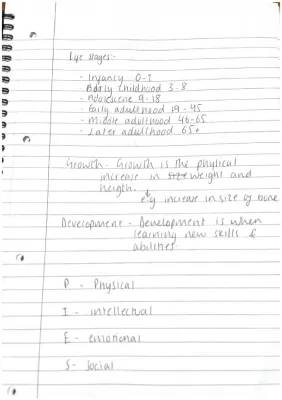 Life stages:-
- Infancy 0-2
- Early childhood 3-8
- Adolescence 9-18
- Early adulthood 19-45
- Middle adulthood 46-65
- Later adulthood 65+
Growth - Growth is the physical
increase in weight and
heigth.
↳ e.g increase in size of bone
Development - Development is when
learning new skills &
abilities
P - Physical
I - intellectual
E - emotional
S - Social